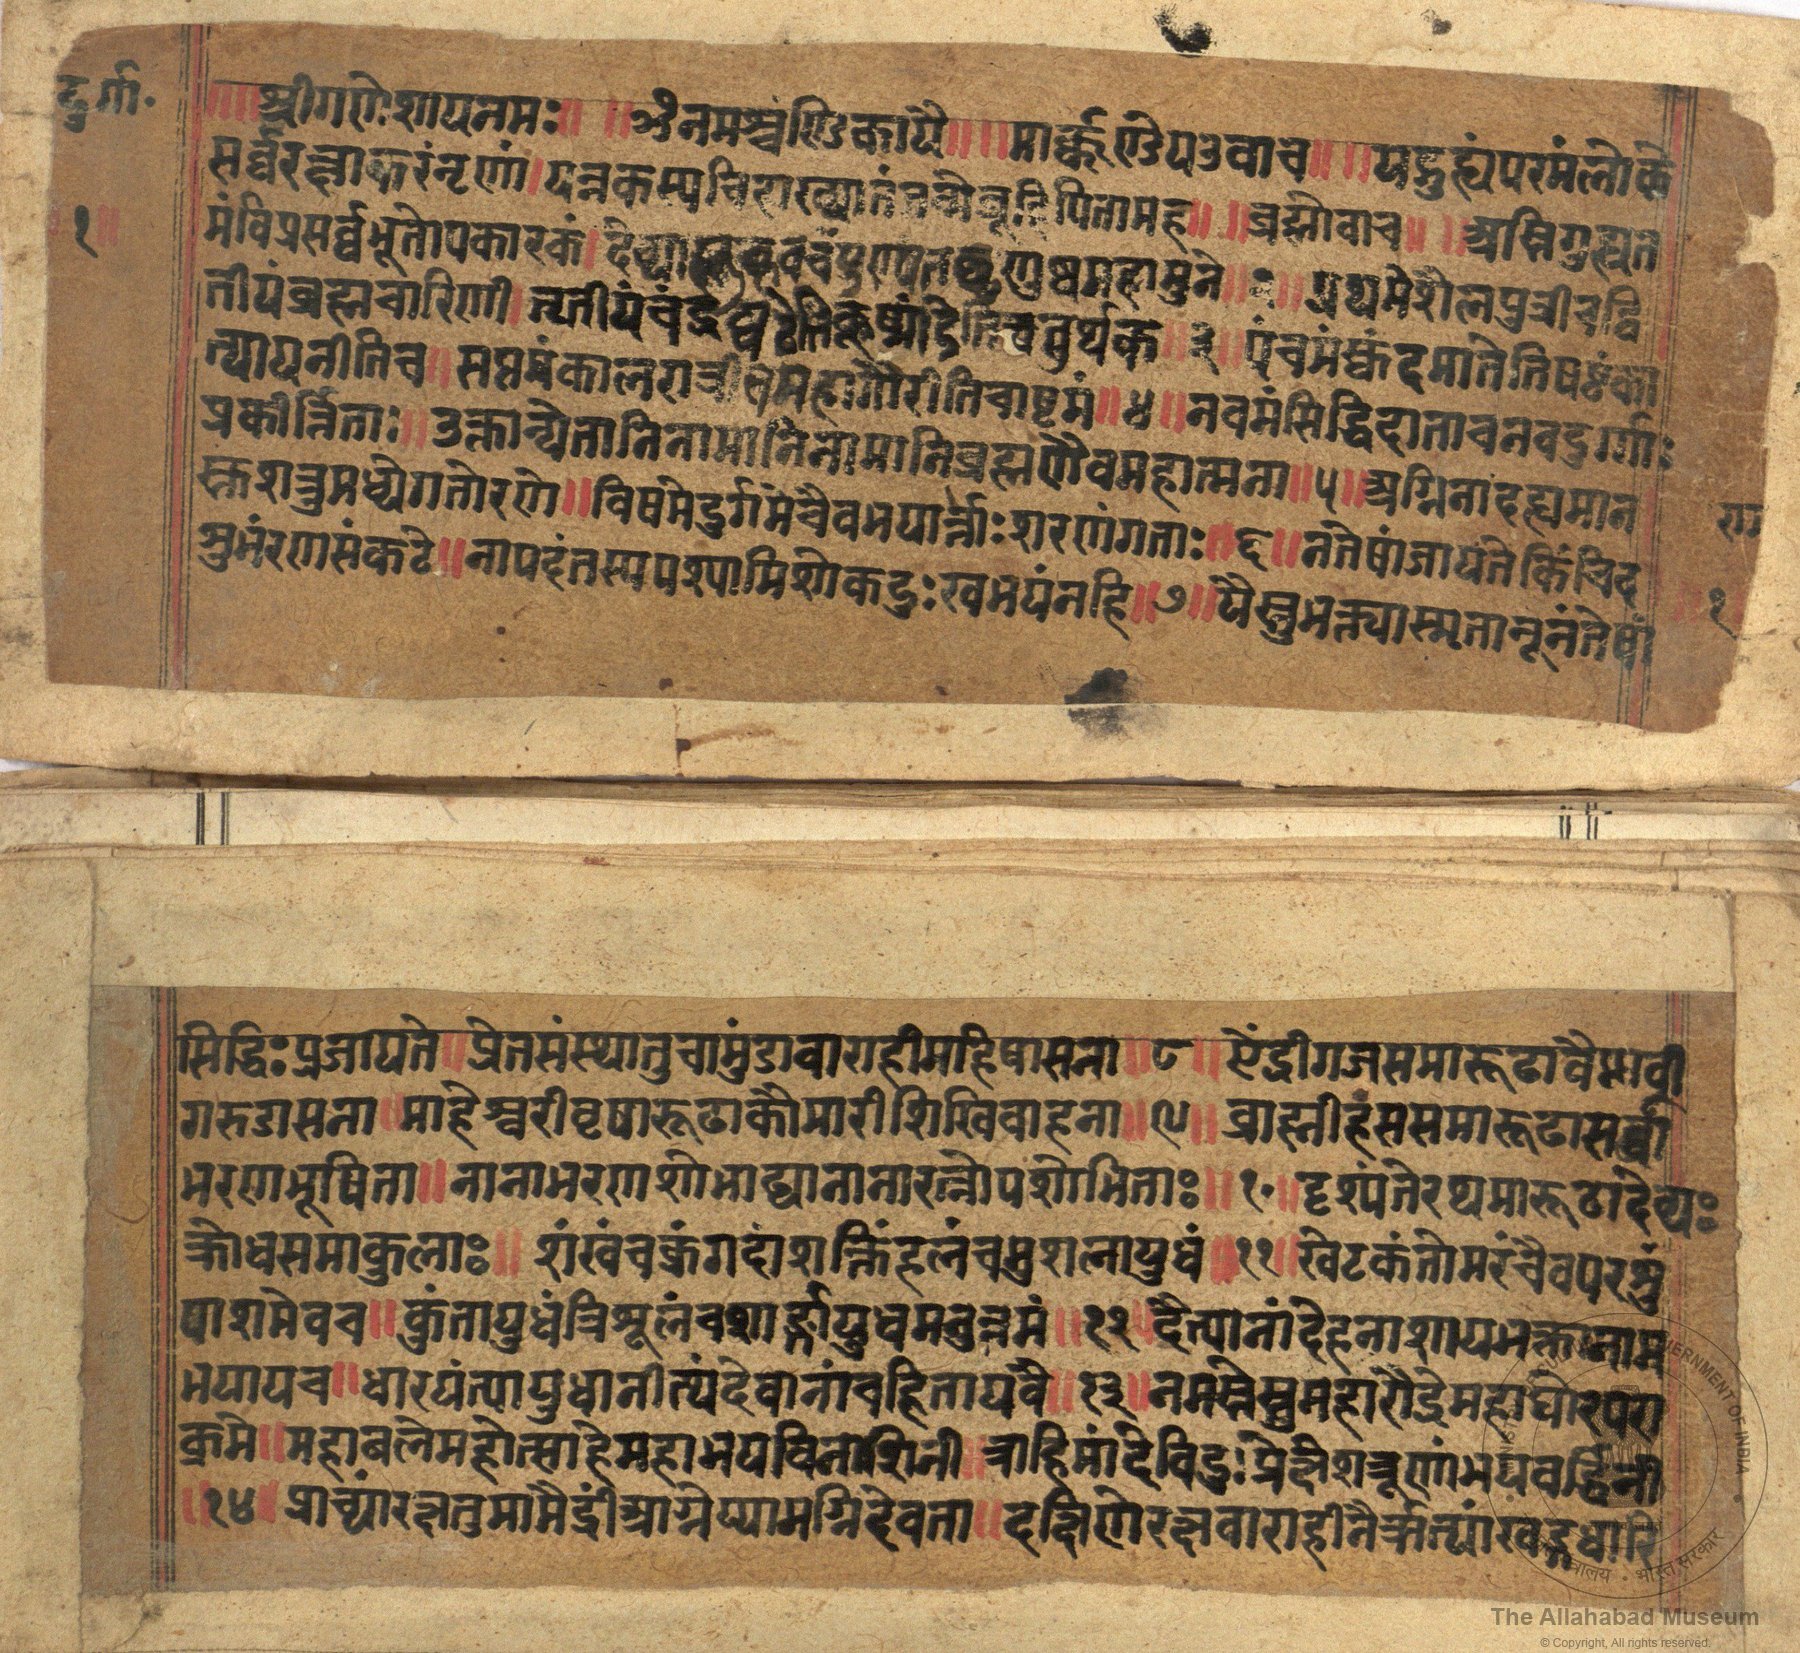 दुर्गा.
१॥
॥॥श्रीगणेशायनमः॥ ॥ॐनमश्चंण्डिकायै॥ ॥मार्क्कण्डेयउवाच॥ ॥यद्गुह्यंपरमंलोके
सर्व्वरक्षाकरंनृणां।यन्नकस्यचिदाख्यातंतन्मेब्रूहिपितामह॥ ॥ब्रह्मोवाच॥ ॥अस्तिगुह्यत
मंविप्रसर्व्वभूतोपकारकं।देव्यास्तुकवचंपुण्यंतछृणुष्वमहामुने॥२॥प्रथमेशैलपुत्रीचद्वि
तीयंब्रह्मचारिणी।त्यतीयंचंद्रघंटेतिकूष्मांडेतिचतुर्थकं॥३॥पंचमंस्कंदमातेतिषष्ठंका
त्यायनीतिच॥सप्तमंकालरात्रीतिमहागौरीतिचाष्टमं॥४॥नवमंसिद्धिदाताचनवदुर्गाः
प्रकीर्त्तिताः॥उक्तान्येतानिनामानिनामानिब्रह्मणैवमहात्मना॥५॥अग्निनादह्यमान
स्तुशत्रुमध्येगतोरणे॥विषमेदुर्गमेचैवभयार्त्ताःशरणंगताः॥६॥नतेषांजायतेकिंचिद
शुभंरणसंकटे॥नापदंतस्यपश्यामिशोकदुःखभयंनहि॥७॥यैस्तुभक्त्यास्मृतानूनंतेषां
राम
१
सिद्धिःप्रजायते॥प्रेतसंस्थातुचामुंडावाराहीमाहिषासना॥८॥ऐंद्रीगजसमारूढावैष्णवी
गरुडासना॥माहेश्वरीवृषारूढाकौमारीशिखिवाहना॥९॥ब्राह्मीहंससमारूढासर्व्वा
भरणभूषिता॥नानाभरणशोभाढ्यानानारत्नोपशोभिताः॥१०॥दृशंपतेरथमारूढादेव्यः
क्रोधसमाकुलाः॥शंखंचक्रंगदांशक्तिंहलंचमुशलायुधं॥११॥खेटकंतोमरंचैवपरशुं
पाशमेवच॥कुंतायुधंत्रिशूलंचशार्ङ्गायुधमनुत्तमं॥१२॥दैत्यानांदेहनाशायभक्तानाम
भयायच॥धारयंत्यायुधानीत्यंदेवानांचहितायवै॥१३॥नमस्तेस्तुमहारौद्रेमहाघोरपरा
क्रमे॥महाबलेमहोत्साहेमहाभयविनाशिनी॥त्राहिमांदेविदुःप्रेक्षेशत्रूणांभयवर्द्धिनी
॥१४॥प्राच्यांरक्षतुमामैंद्रीआग्नेय्यामग्निदेवता॥दक्षिणेरक्षवाराहीनैर्ऋत्यांखड्गधारि
The Allahabad Museum
© Copyright, All rights reserved.